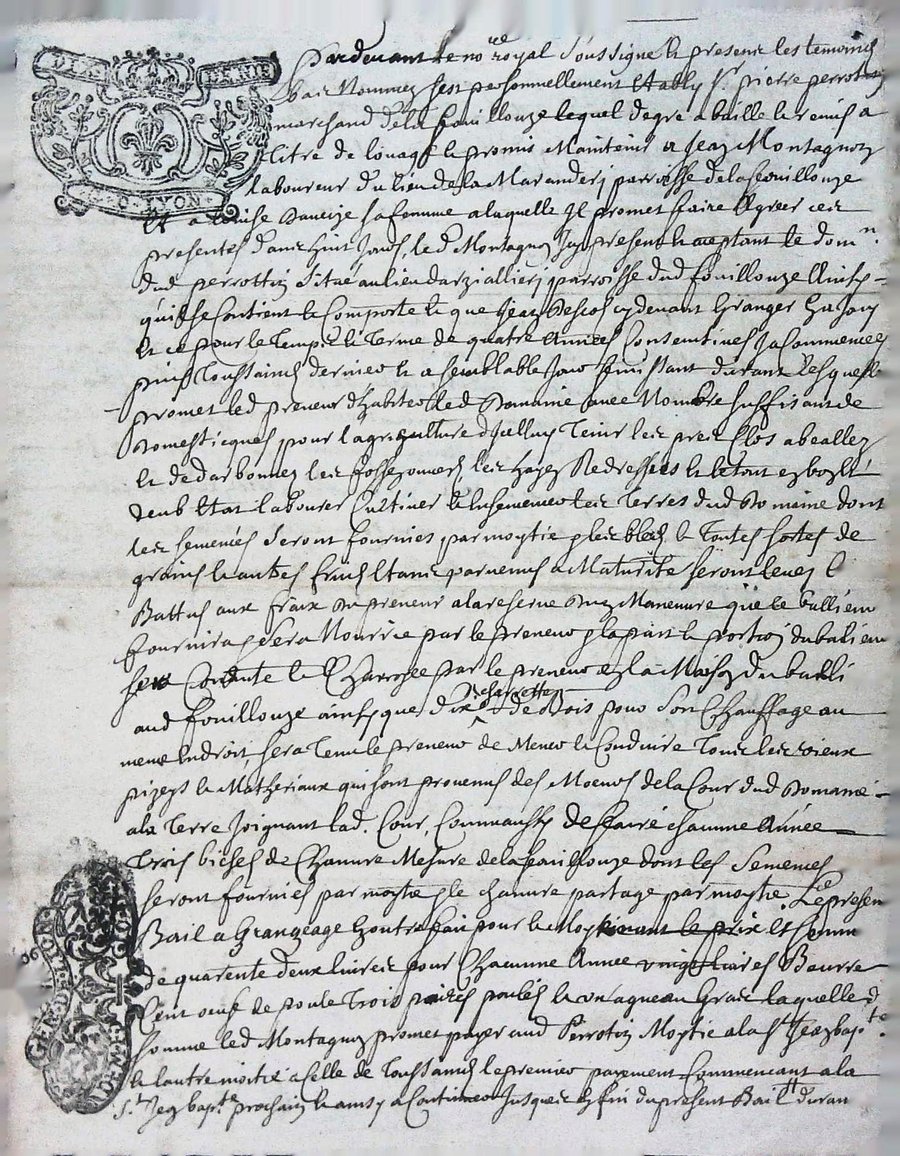 Pardevant le no.re royal soussigne et presens les temoins
bas Nommes sest personnellement estably Sr. pierre perrotin
marchand de la fouillouze lequel de gre a baille et remis a
titre de louage et promis Maintenir a Jean Montagnon
laboureur du lieu de la parroisse de la fouillouze
Et a sa femme a laquelle Il promet faire Agreer ces
presentes dans huit Jours, led. Montagnon Icy present et aceptant le dom.ne
dud perrottin situé au lieu parroisse dud fouillouze Ainsy
quil se Contient et Comporte et que Jean cy devant Granger En Jouy
Et ce pour le Temps et Terme de quatre Années Consecutives Ja Commencees
Toussaints dernier et a semblable Jour finissant durant lesquelles
promet led preneur d'habiter led Domaine avec Nombre suffisant de
Domesticques pour lagriculture dicelluy Tenir les prez clos
et les fosses les hayes Redressées et le tout
Etat labourer Cultiver et Ensemencer les Terres dud Domaine dont
les semences seront fournies par moytie bleds et Toutes sortes de
grains et autres fruits Etant parvenus a Maturite seront levez et
Battus aux fraix du preneur a la reserve dun Manœuvre que le bailleur
fournira sera Nourrie par le preneur la part et portion du bailleur
sera Conduite et Charroyee par le preneur en la Maison du bailli
aud fouillouze ainsy que dix charettes de Bois pour son Chauffage au
meme Endroit, sera Tenu le preneur de Mener et Conduire Tous les vieux
pizeys et Matheriaux qui sont provenus des de la Cour dud Domaine
a la Terre Joignant lad. Cour, Comm'aussy de faire chacune Année
Trois bichets de Chanvre Mesure de la fouillouze dont les Semences
seront fournies par moytie et le chanvre partage par moytie. Le presen
Bail a Grangeage Encontre fait pour et Moyennant le prix et somme
de quarente deux livres pour Chacune Année vingt livres Beurre
Cent œufs de poule Trois paires poulets et un agneau Gras laquelle d.
somme led Montagnon promet payer aud Perrotin Moytie a la St Jean bapte.
et lautre moitié a celle de Toussaints le premier payement Commencant a la
St. Jean bapte. prochain et ainsy a Continuer Jusques En fin du present Bail duran
DIX DENIERS
G. LYON
GEN. DE LYON